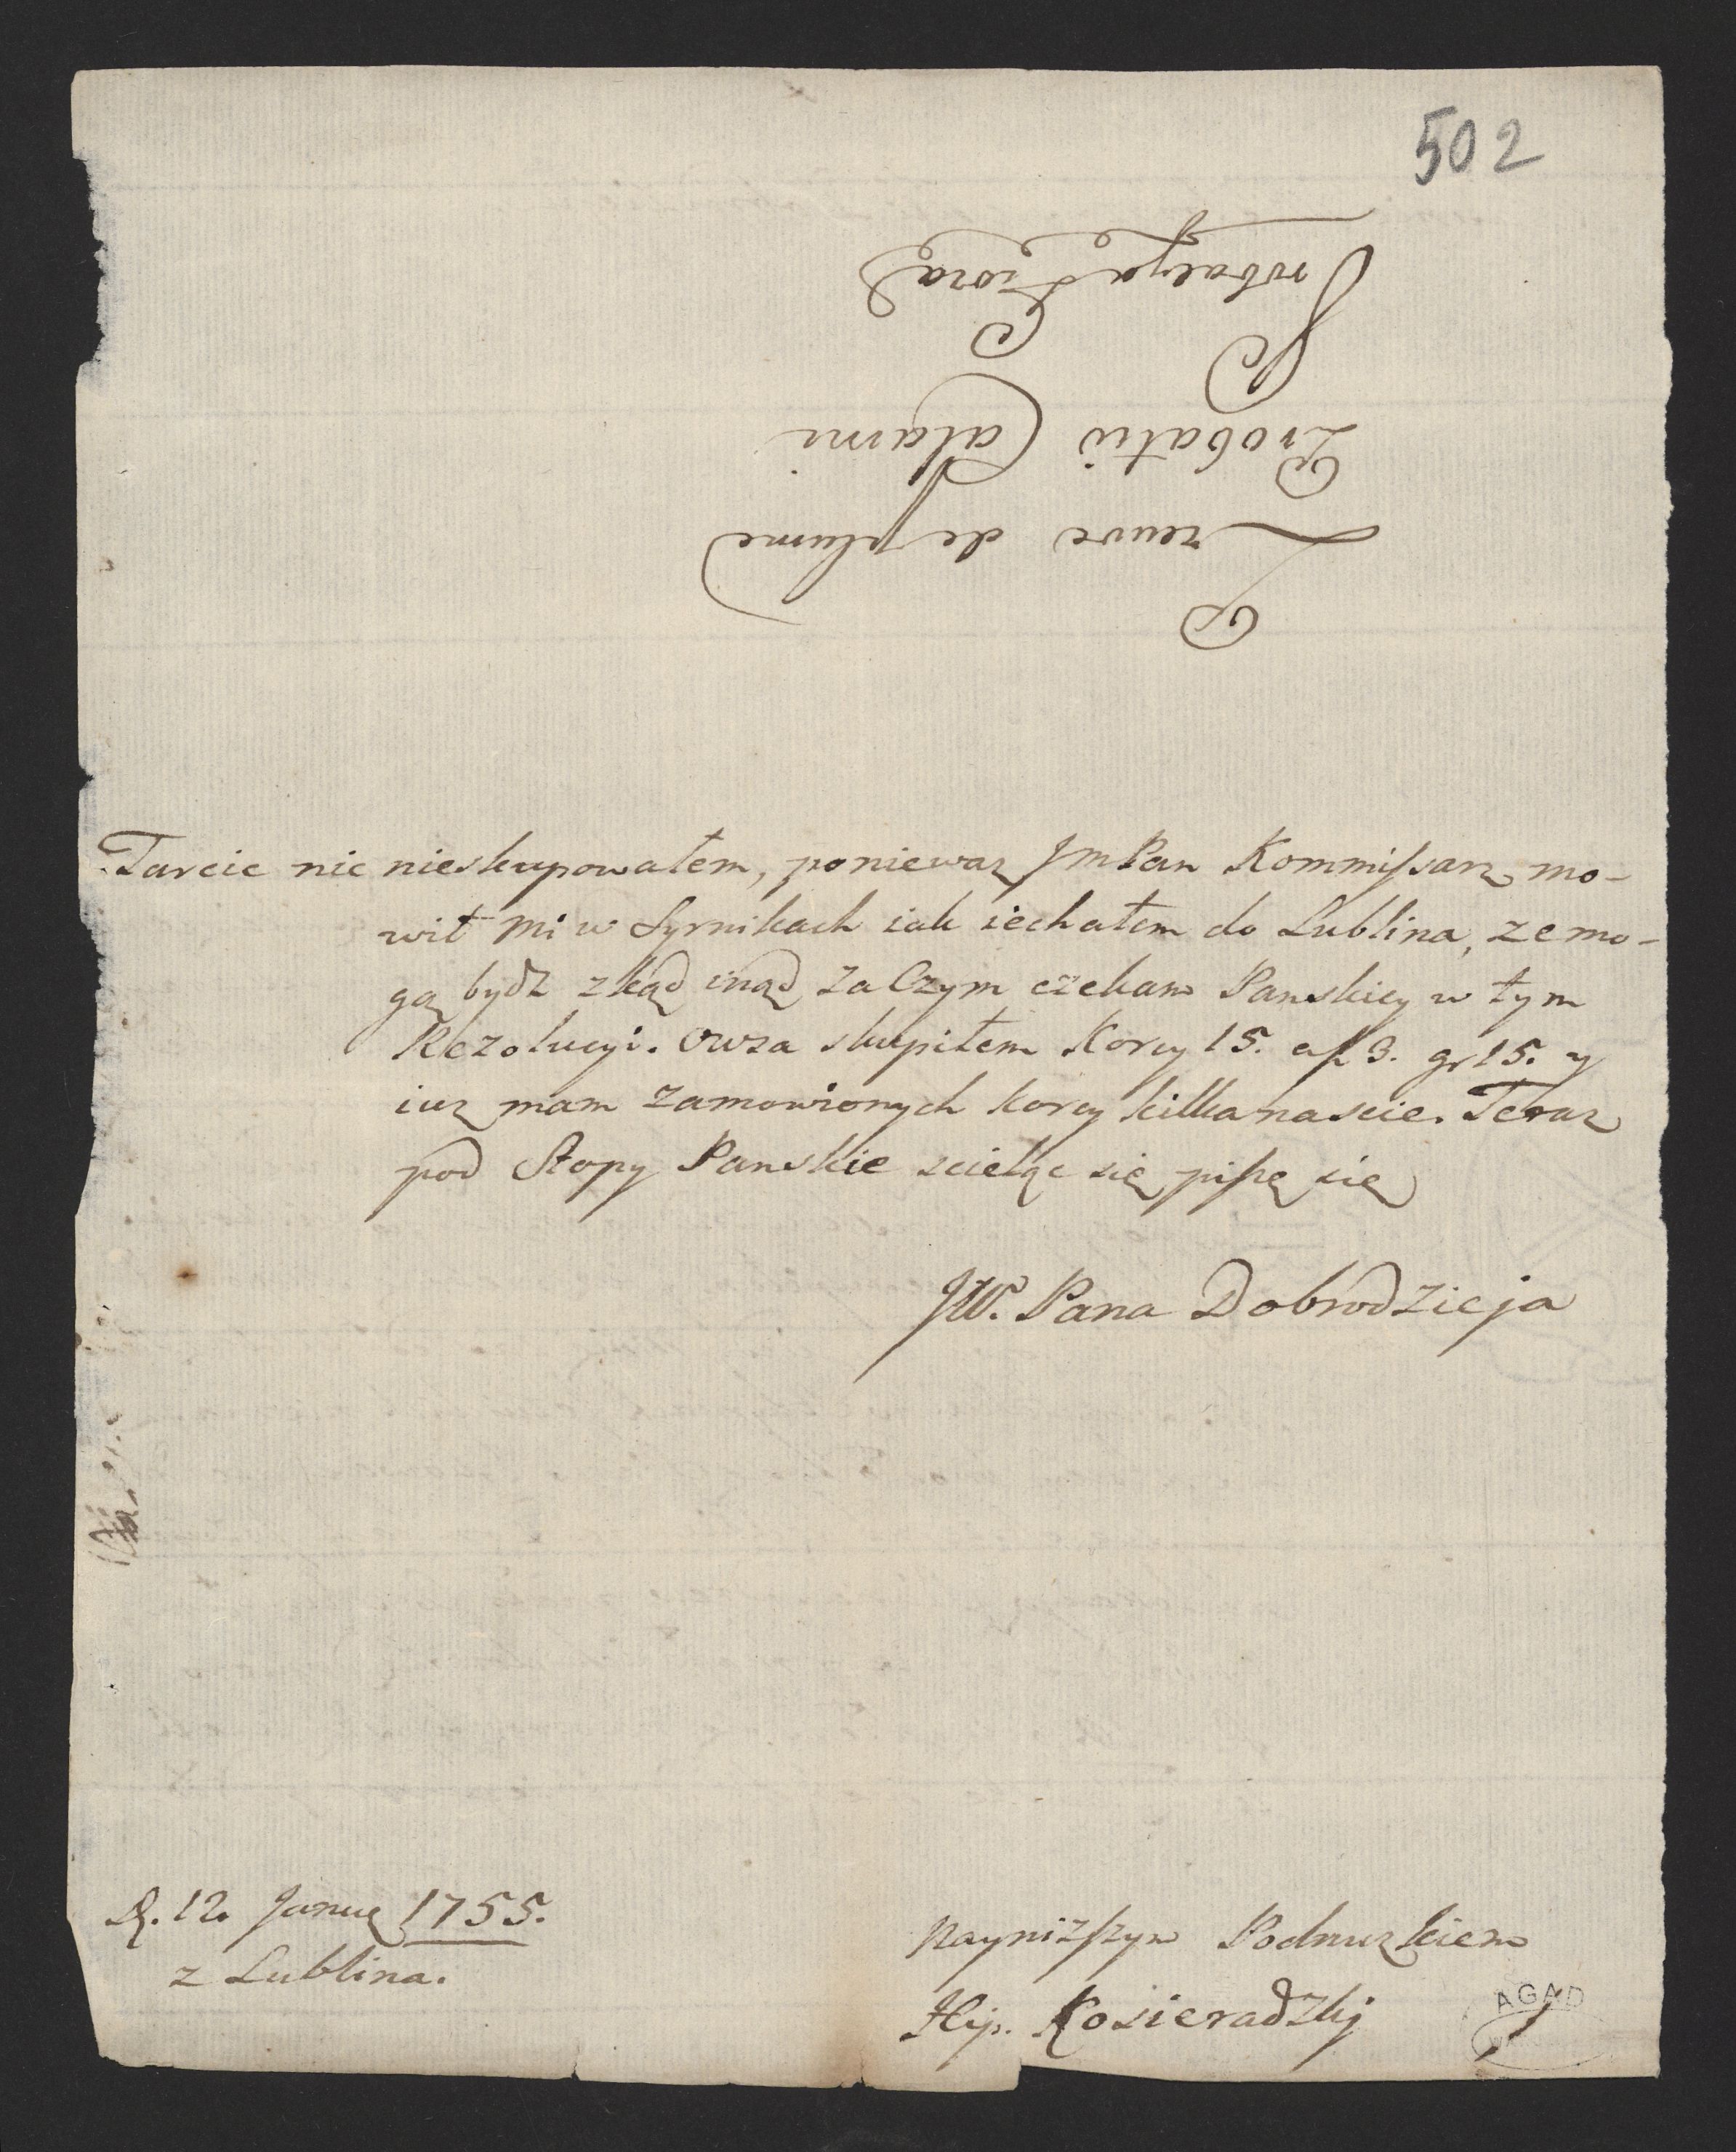 502
Preuve de plume
Probatio Calami
Probacya Piora
Tarcic nic nieskupowałem, poniewaz JmPan Kommissarz mo-
wił mi w Syrnikach iak iechałem do Lublina, ze mo-
gą bydz zkąd inąd, zaczym czekam Panskiey w tym
Rezolucyi. Owsa skupiłem Korcy 15. a ƒ 3. gr 15. y
iuz mam zamowionych korcy kilkanascie. Teraz
pod Stopy Panskie scieląc się, piszę się
JW. Pana Dobrodzieja
D. 12. Janua 1755.
z Lublina.
Nayniższym Podnuzkiem
Hip. Kosieradzkj
AGAD